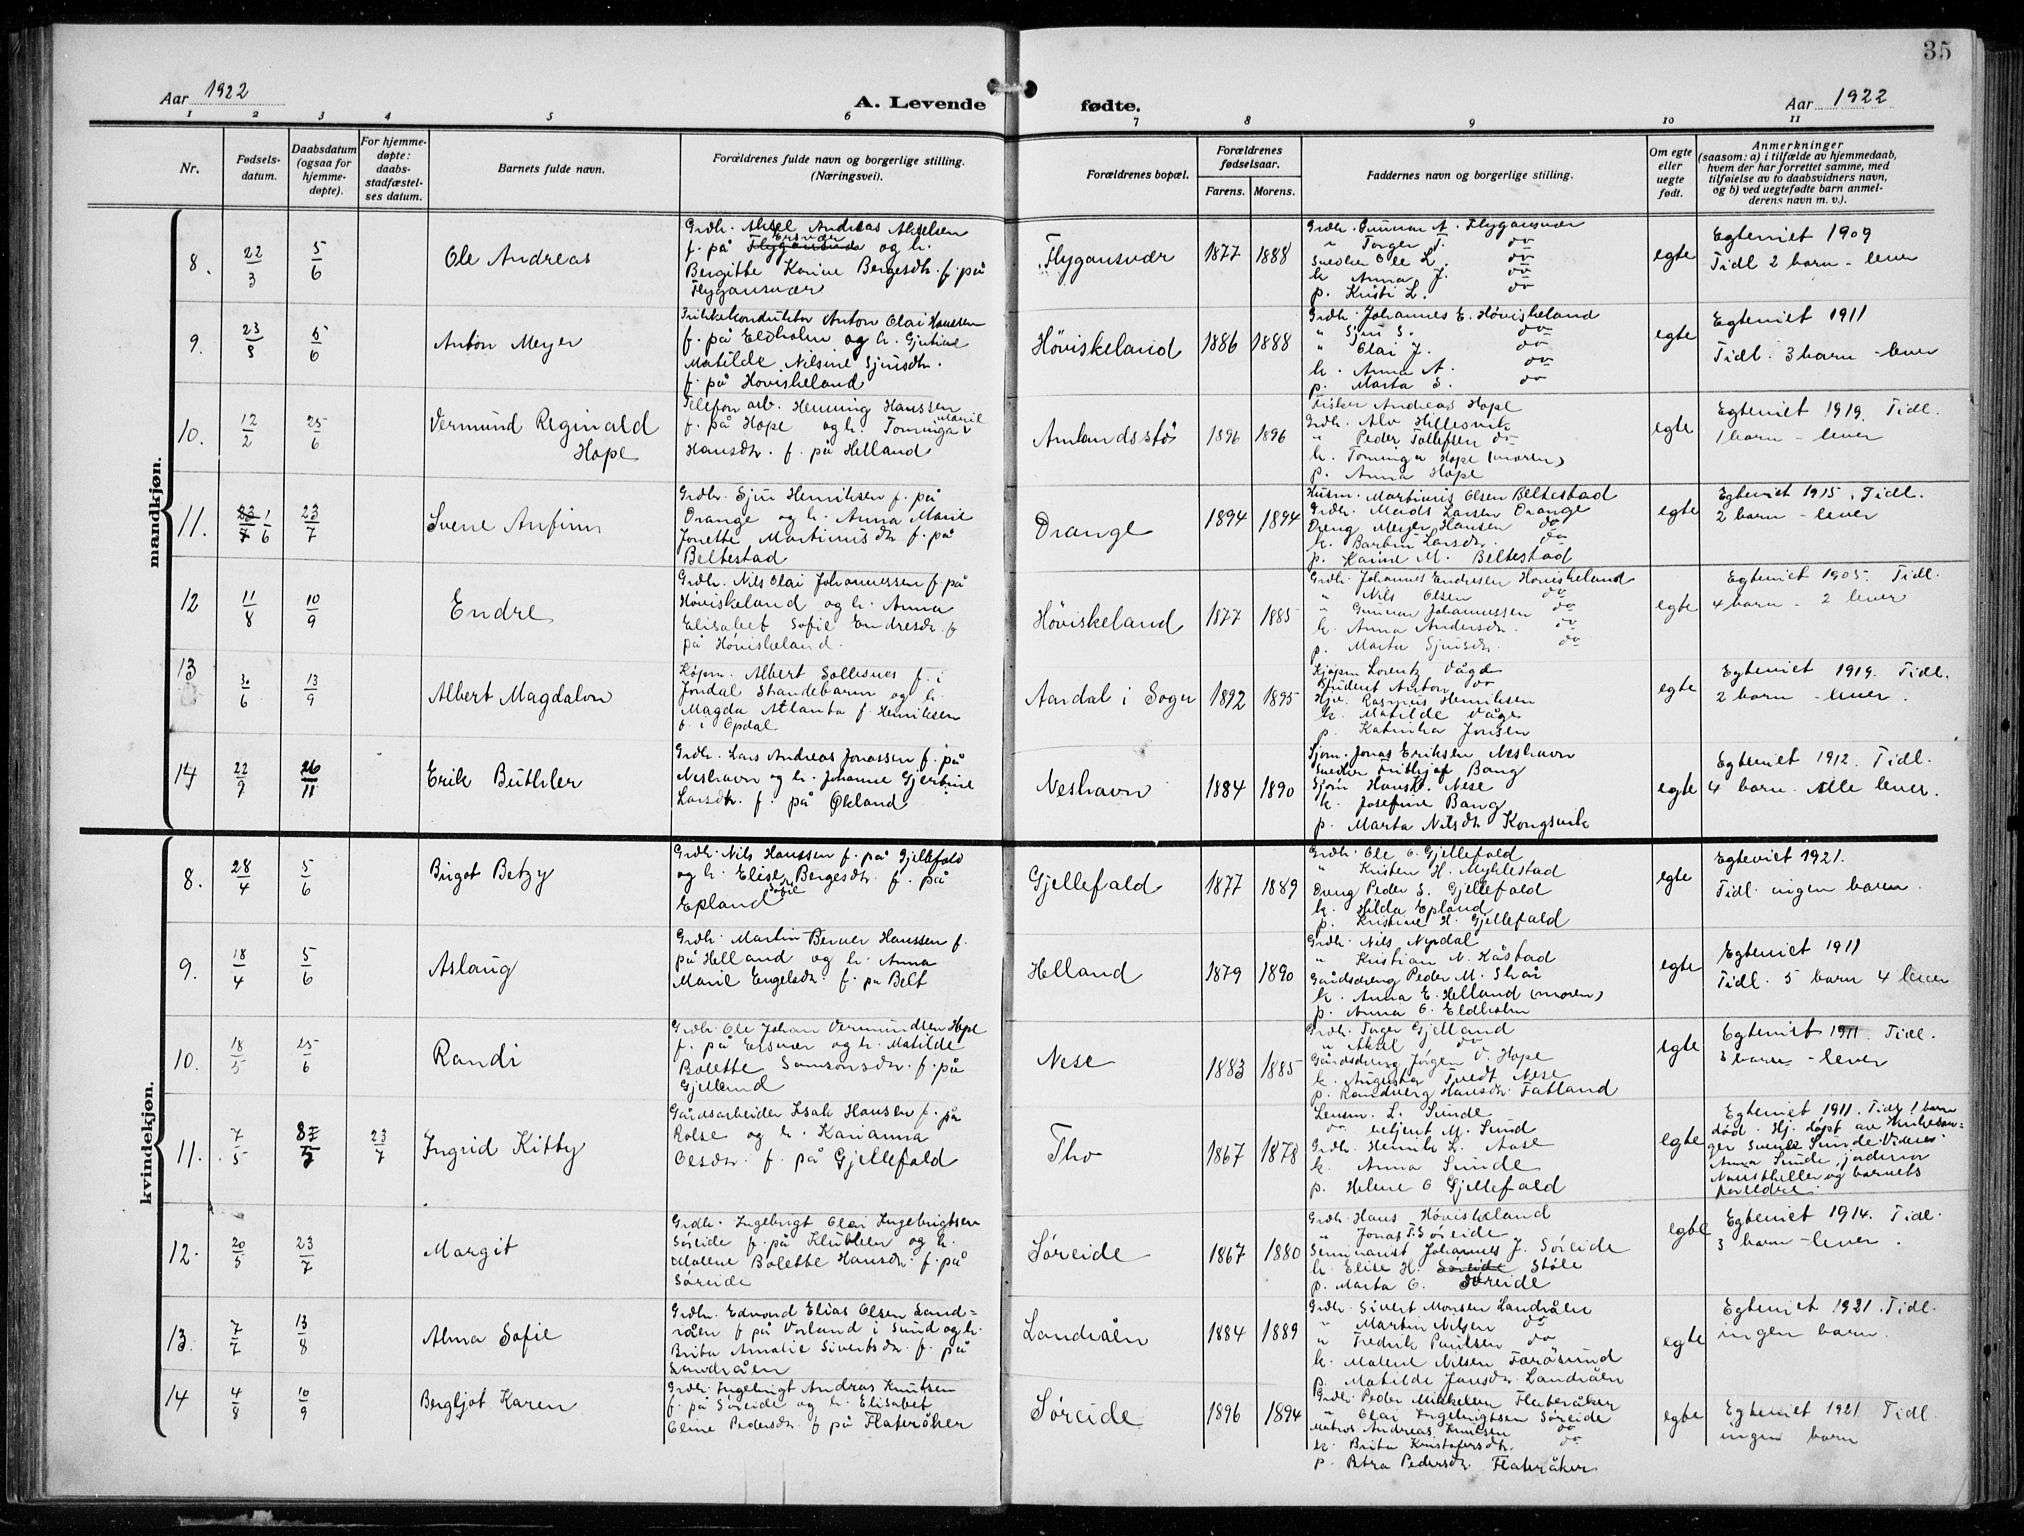 35
Aar 1922
A. Levende fødte.
Aar 1922
1 2 3 4 5 6 7 8 9 10 11
Nr.
Fødsels-
datum.
Daabsdatum
(ogsaa for
hjemme-
døpte).
For hjemme-
døpte:
daabs-
stadfæstel-
ses datum.
Barnets fulde navn.
Forældrenes fulde navn og borgerlige stilling.
(Næringsvei).
Forældrenes bopæl.
Forældrenes
fødselsaar.
Farens. Morens.
Faddernes navn og borgerlige stilling.
Om egte
eller
uegte
født.
Anmerkninger
(saasom: a) i tilfælde av hjemmedaab,
hvem der har forrettet samme, med
tilføielse av to daabsvidners navn,
og b) ved uegtefødte barn anmel-
derens navn m. v.).
mandkjøn.
8. 22/3 5/6 Ole Andreas
Grdbr. Aksel Andreas Akselsen
f. på Flygansvær Eidsvær og h.
Bergitte Karine Bergesdtr. f. på
Flygansvær
Flygansvær 1877 1888
Grdbr. Gunnar A. Flygansvær
" Torger T. do
Snedker Ole L. do
k. Anna J. do
p. Kristi L. do
egte
Egteviet 1909
Tidl 2 barn - lever
9. 23/8 5/6 Anton Meyer
Trikkekonduktør Anton Olai Hanssen
f. på Eldholm og h. Gjertrud
Matilde Nilsine Sjursdtr.
f. på Høviskeland
Høviskeland 1886 1888
Grdbr. Johannes E. Høviskeland
" Sjur S. do
" Olai J. do
k. Anna A. do
p. Marta S. do
egte
Egteviet 1911
Tidl. 3 barn - lever
10. 12/2 25/6 Vermund Reginald
Hope
Telefon arb. Henning Hanssen
f. på Hope og h. Tominga Marie
Hansdtr. f. på Helland
Amlandsstø 1896 1896
Fisker Andreas Hope
Grdbr. Alv Hillesvik
" Peder Tollefsen do
k. Tominga Hope (moren)
p. Anna Hope
egte
Egteviet 1919. Tidl.
1 barn - lever
11. 1/6 23/7 Svene Anfinn
Grdbr. Sjur Henriksen f. på
Drange og h. Anna Marie
Jonette Martinusdtr f. på
Beltestad
Drange 1894 1894
Husm. Martinus Olsen Beltestad
Grdbr. Mads Larsen Drange
Dreng Meyer Hansen do
k. Barbru Larsdtr. do
p. Karine M. Beltestad
egte
Egteviet 1915. Tidl.
2 barn - lever
12 11/8 10/9 Endre
Grdbr. Nils Olai Johannessen f. på
Høviskeland og h. Anna
Elisabet Sofie Endresdtr. f.
på Høviskeland.
Høviskeland 1877 1885
Grdbr. Johannes Endresen Høviskeland
" Nils Olsen do
" Gunnar Johannessen do
k. Anna Andersdtr. do
p. Marta Sjursdtr. do
egte
Egteviet 1905. Tidl.
4 barn - 2 lever
13 30/6 13/9 Albert Magdalon
Kjøpm. Albert Sollesnes f. i
Jondal Strandebarm og h.
Magda Atlanta f. Henriksen
f. i Opdal
Aardal i Sogn 1892 1895
Kjøpm Lorentz Våge
Student Anton do
Hjv. Rasmus Henriksen
k. Matilde Våge
p. Katinka Jonsen
egte
Egteviet 1919. Tidl.
2 barn - lever.
14 22/9 26/11 Erik Buthler
Grdbr. Lars Andreas Jonassen f. på
Neshavn og h. Johanne Gjertine
Larsdtr. f. på Økland
Neshavn 1884 1890
Sjøm. Jonas Eriksen Neshavn
Snedker Fritthjof Bang
Sjøm Hans K. Nese
k. Josefine Bang
p. Marta Nilsdtr Kongsvik
egte
Egteviet 1912. Tidl.
4 barn. Alle lever.
kvindekjøn.
8. 28/4 5/6 Birgot Betzy
Grdbr. Nils Hanssen f. på Gjellefald
og h. Elise Sofie Bergesdtr. f. på
Epland
Gjellefald 1877 1889
Grdbr. Ole O. Gjellefald
" Kristen H. Myklestad
Dreng Peder S. Gjellefald
k. Hilda Epland
p. Kristine H. Gjellefald
egte
Egteviet 1921.
Tidl. ingen barn.
9. 18/4 5/6 Aslaug
Grdbr. Martin Berner Hanssen f.
på Helland og h. Anna
Marie Engelsdtr. f. på Belt
Helland 1879 1890
Grdbr. Nils Nyrdal
" Kristian N. Kåstad
Gårdsdreng Peder M. Skår
k. Anna E. Helland (moren)
p. Anna O. Eldholm
egte
Egteviet 1911
Tidl. 5 barn 4 lever
10. 18/5 25/6 Randi
Grdbr. Ole Johan Vermundsen Hope
f. på Eidsvær og h. Matilde
Bolette Samsonsdtr. f. på
Gjelland
Nese 1883 1885
Grdbr. Torger Gjelland
" Aksel do
Gårdsdreng Jørgen V. Hope
k. Augusta Tvedt Nese
p. Randberg Hansdtr. Fatland
egte
Egteviet 1911. Tidl.
3 barn - lever
11. 7/5 23/7 Ingrid Kitty
Gårdsarbeider Isak Hansen f. på
Rolse og h. Karianna
Olsdtr. f. på Gjellefald
Tho 1867 1878
Lensm. L. Sunde
do betjent M. Sund
Grdbr. Henrik L. Aase
k. Anna Sunde
p. Helene O Gjellefald
egte
Egteviet 1911. Tidl 1 barn
død. Hj. døpt av Kirkesan-
ger Sunde Vidnes:
Anna Sunde, jordmor
Naustheller og barnets
foreldre.
12. 20/5 23/7 Margit
Grdbr. Ingebrigt Olai Ingebrigtsen
Søreide f. på Klubben og h.
Malene Bolette Hansdtr. f. på
Søreide
Søreide 1867 1880
Grdbr. Hans Høviskeland
" Jonas T. Søreide
Seminarist Johannes J. Søreide
k. Elise H. Søreide Støle
p. Marta O. Søreide
egte
Egteviet 1914. Tidl.
3 barn - lever.
13. 7/7 13/8 Alma Sofie
Grdbr. Edmond Elias Olsen Land-
råen f på Vorland i Sund og h.
Brita Amalie Sivertsdtr. f. på
Landråen
Landråen 1884 1889
Grdbr. Sivert Monsen Landråen
" Martin Nilsen do
" Fredrik Paulsen do
k. Malene Nilsen Færøsund
p. Matilde Jonsdtr. Landråen
egte
Egteviet 1921. Tidl.
ingen barn.
14 4/8 10/9 Bergljot Karen
Grdbr. Ingebrigt Andreas Knutsen
f. på Søreide og h. Elisabet
Oline Pedersdtr. f på Flateråker
Søreide 1896 1894
Grdbr. Peder Mikkelsen Flateråker
" Olai Ingebrigtsen Søreide
Matros Andreas Knutsen do
k. Brita Kristofersdtr. do
p. Petra Pedersdtr. Flateråker
egte
Egteviet 1921 Tidl.
ingen barn